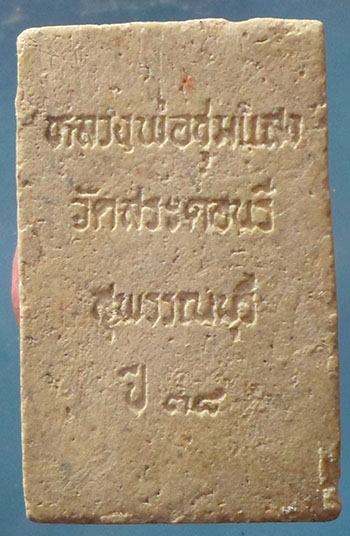 หลวงพ่อชุ่มแสง
วัดสระด่านรี
สุพรรณบุรี
ปี ๓๘